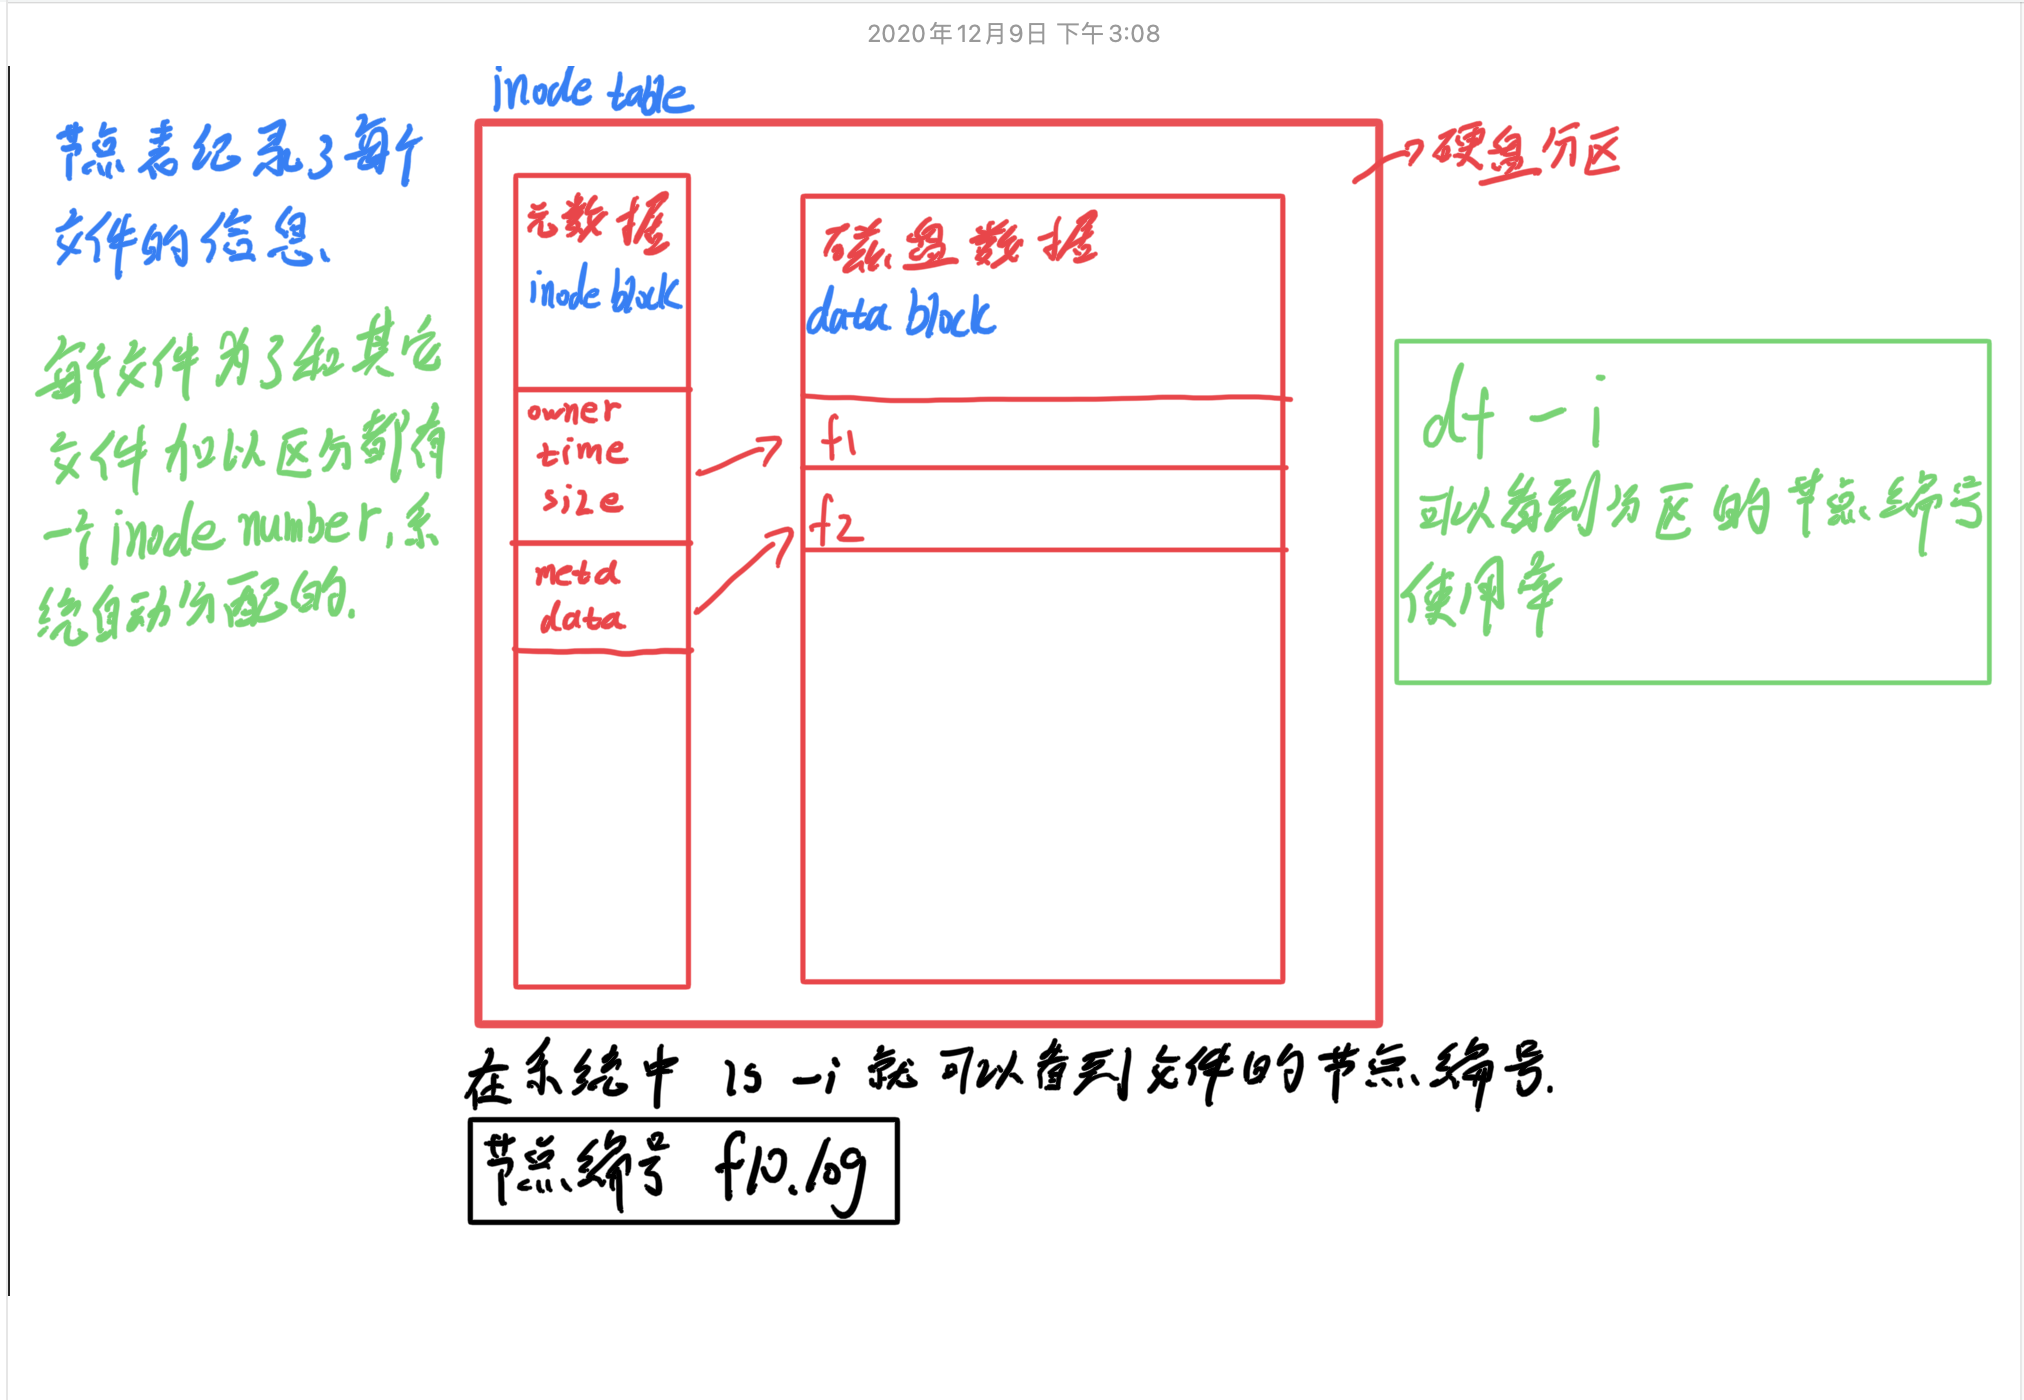 2020年12月9日 下午3:08
inode table
节点表纪录了每个
文件的信息、
每个文件为了和其它
文件加以区分都有
一个inode number,系
统自动分配的.
硬盘分区
元数据
inode block
owner
time
size
meta
data
磁盘数据
data block
f1
f2
df -i
可以看到分区的节点编号
使用率
在系统中 ls -i 就可以看到文件的节点编号.
节点编号 f10.log